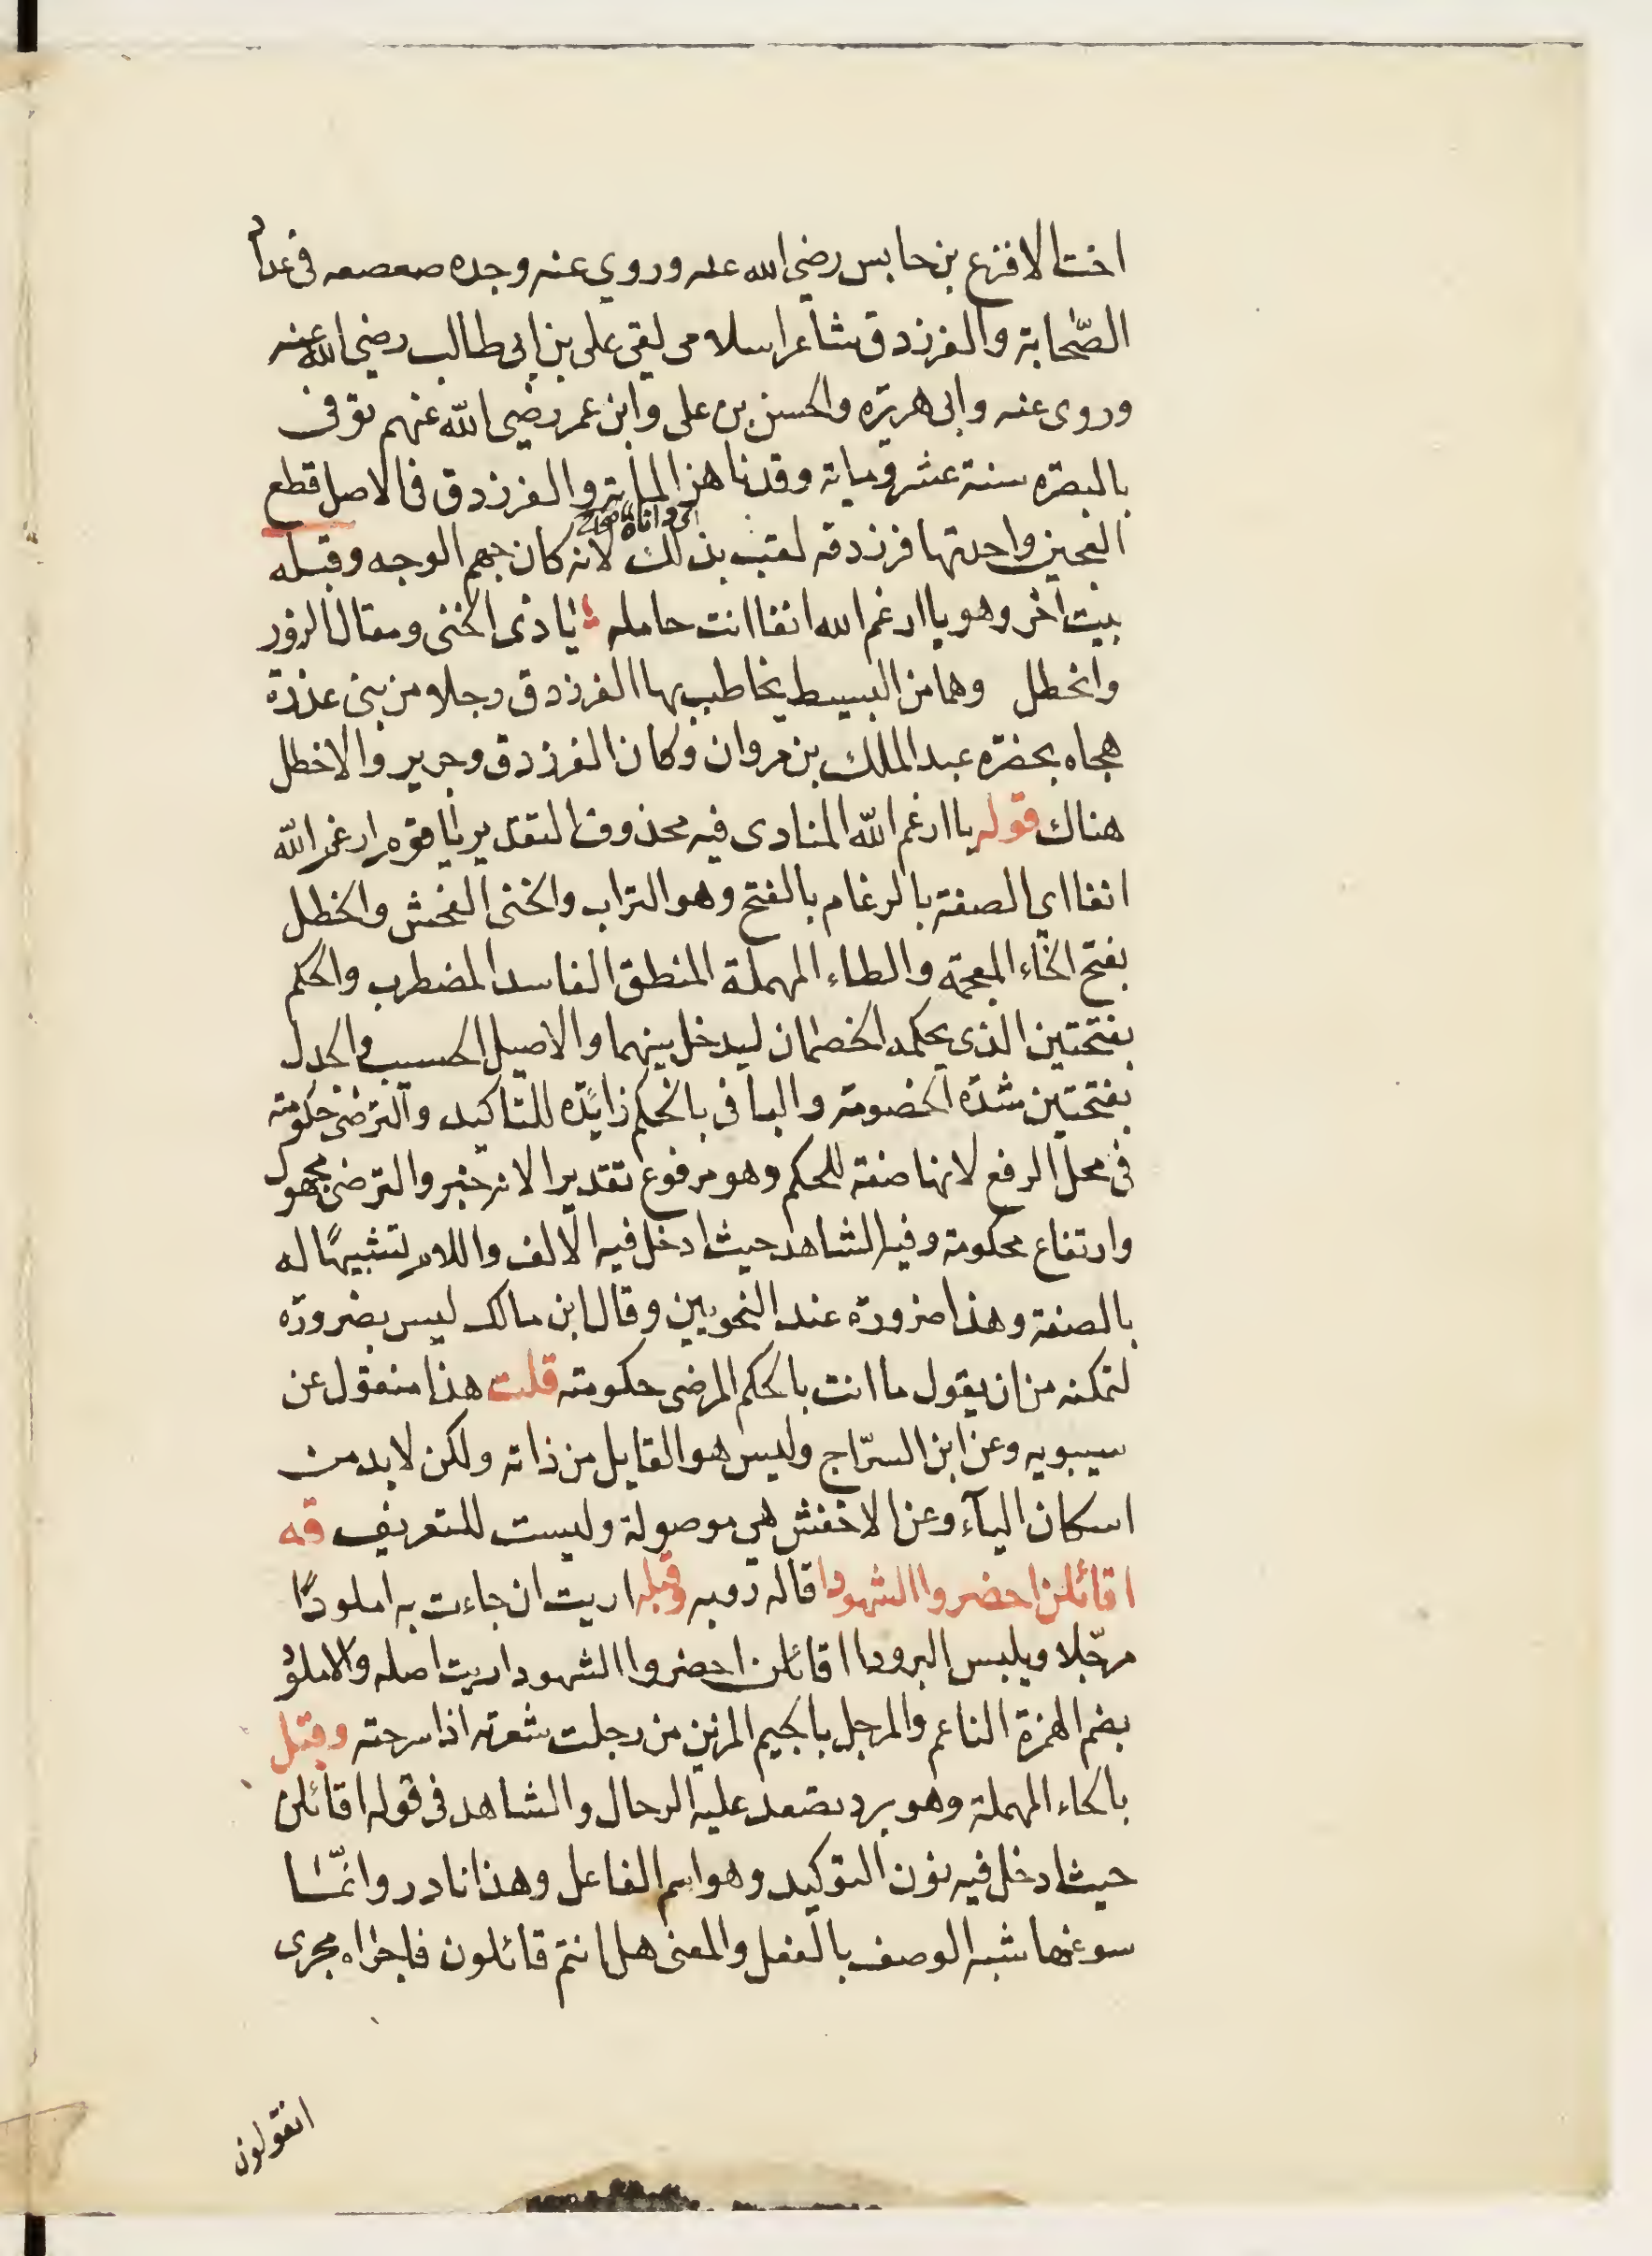 اخت الاقرع بن حابس رضي الله عنه وروي عنه وجده صعصعه في عداد
الصّحابة والفرزدق شاعر اسلامي لقي علي بن ابي طالب رضي الله عنه
وروى عنه وابي هريرة والحسن بن علي وابن عمر رضي الله عنهم توفي
بالبصرة سنة عشر ومایة وقد ناهز المایة والفرزدق في الاصل قطع
العجين واحدتها فرزدقه لقب بذلك لانه كان جهم الوجه وقبله
بيت آخر وهو يا ارغم الله انفا انت حامله يا ذى الخنى ومقال الزور
والخطل وهما من البسيط يخاطب بها الفرزدق رجلا من بنى عذرة
هجاه بحضرة عبد الملك بن مروان وكان الفرزدق وجرير والاخطل
هناك قوله يا ارغم الله المنادى فيه محذوف التقدير يا قوم ارغم الله
انفا اي الصقة بالرغام بالفتح وهو التراب والخنى الفحش والخطل
بفتح الخاء المعجمة والطاء المهملة المنطق الفاسد المضطرب والحكم
بفتحتين الذى يحكمه الخصمان ليدخل بينهما والاصيل الحسيب والجدل
بفتحتين شدة الخصومة والبا في بالحكم زايدة للتاكيد والترضى حكومته
في محل الرفع لانها صفة للحكم وهو مرفوع تقديرا لانه خبر والترضى مجهول
وارتفاع حكومة وفيه الشاهد حيث ادخل فيه الالف واللام تشبيهًا له
بالصفة وهذا ضرورة عند النحويين وقال ابن مالك ليس بضرورة
لتمكنه من ان يقول ما انت بالحكم المرضى حكومته قلت هذا منقول عن
سيبويه وعن ابن السرّاج وليس هو القايل من ذاته ولكن لا بد من
اسكان اليآء وعن الاخفش هي موصولة وليست للتعريف قه
اقائلن احضروا الشهودا قاله روبه وقبله اريت ان جاءت به املودًا
مرجّلا ويلبس البرودا اقائلن احضروا الشهودا اريت اصله والاملود
بضم الهمزة الناعم والمرجل بالجيم المزين من رجلت شعرته اذا سرحته وقيل
بالحاء المهملة وهو برد تصعد عليه الرحال والشاهد في قوله اقائلن
حيث ادخل فيه نون التوكيد وهو اسم الفاعل وهذا نادر وانّما
سوغها شبه الوصف بالفعل والمعنى هل انتم قائلون فاجراه مجرى
اتقولون